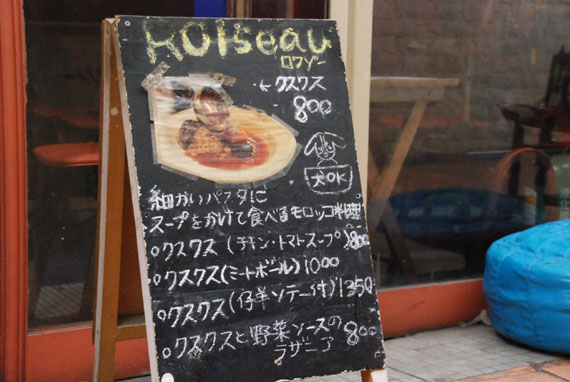 ROiseau
ロワゾー
←クスクス
800
犬OK
細かいパスタに
スープをかけて食べるモロッコ料理
○クスクス(チキン・トマトスープ)800
○クスクス(ミートボール)1000
○クスクス(仔羊ソテー付)1350
○クスクスと野菜ソースの
ラザニア 800